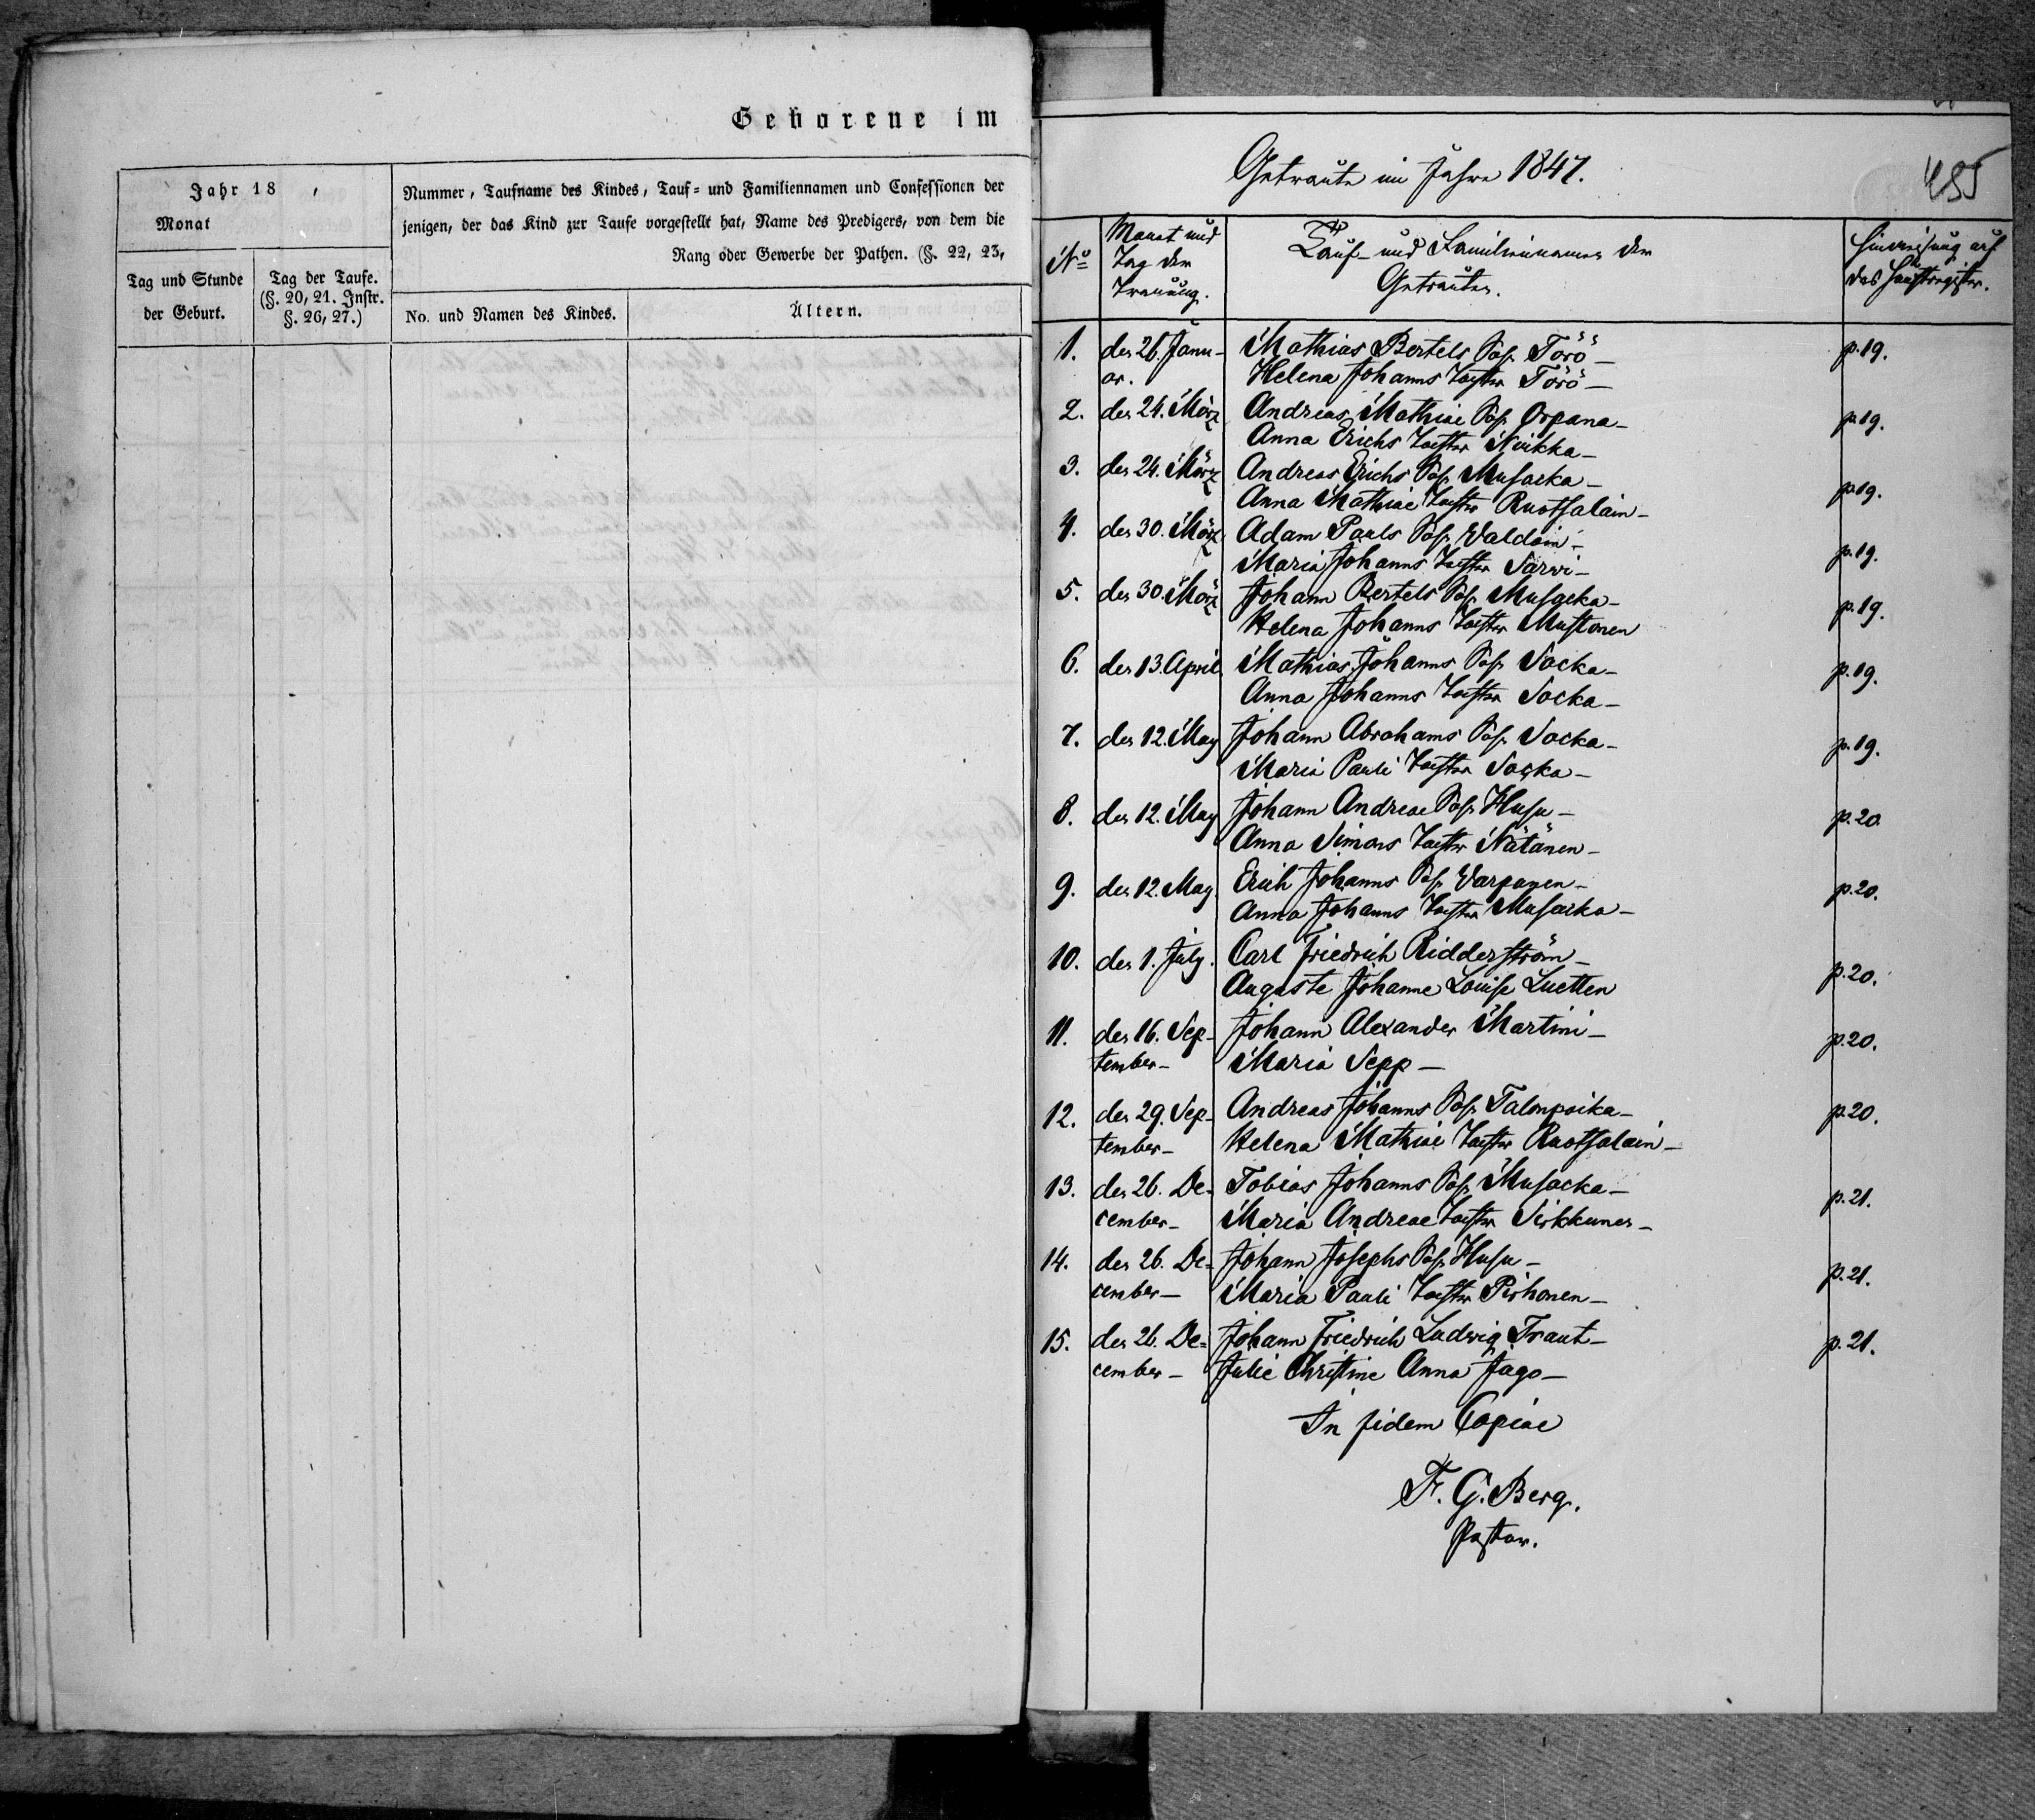 Geborene im
Jahr 18 ,
Monat
Tag und Stunde
der Geburt.
Tag der Taufe.
(§. 20, 21. Instr.
§. 26, 27.)
Nummer, Taufname des Kindes, Tauf- und Familiennamen und Confessionen der
jenigen, der das Kind zur Taufe vorgestellt hat, Name des Predigers, von dem die
Rang oder Gewerbe der Pathen. (§. 22, 23,
No. und Namen des Kindes.
Ältern.
Getraute im Jahre 1847.
No
Monat und
Tag der
Trauung.
Tauf- und Familiennamen der
Getrauten.
Hinweisung auf
das Hauptregister.
1. den 26. Janu- Mathias Bertels Sohn Törö - p. 19.
ar. Helena Johanns Tochter Törö -
2. den 24. März Andreas Mathiae Sohn Orpana - p. 19.
Anna Erichs Tochter Nuikka -
3. den 24. März Andreas Erichs Sohn Musacka - p. 19.
Anna Mathiae Tochter Ruotsalain -
4. den 30. März Adam Pauls Sohn Waldain - p. 19.
Maria Johanns Tochter Särvi -
5. den 30. März Johann Bertels Sohn Musacka - p. 19.
Helena Johanns Tochter Mustonen
6. den 13. April. Mathias Johanns Sohn Sacka - p. 19.
Anna Johanns Tochter Sacka -
7. den 12. May Johann Abrahams Sohn Sacka - p. 19.
Maria Pauli Tochter Sacka -
8. den 12. May Johann Andreae Sohn Husu - p. 20.
Anna Simons Tochter Nätänen -
9. den 12. May. Erich Johanns Sohn Warpanen - p. 20.
Anna Johanns Tochter Musacka -
10. den 1. July. Carl Friedrich Ridderström - p. 20.
Auguste Johanne Louise Luetten
11. den 16. Sep- Johann Alexander Martini - p. 20.
tember - Maria Sepp -
12. den 29. Sep- Andreas Johanns Sohn Talonpoika - p. 20.
tember - Helena Mathiae Tochter Ruotsalain -
13. den 26. De- Tobias Johanns Sohn Musacka - p. 21.
cember - Maria Andreae Tochter Sirkkunen -
14. den 26. De- Johann Josephs Sohn Husu - p. 21.
cember - Maria Pauli Tochter Pirhonen -
15. den 26. De- Johann Friedrich Ludwig Traut - p. 21.
cember - Julie Christine Anna Jago -
In fidem Copiae
F. G. Berg.
Pastor.